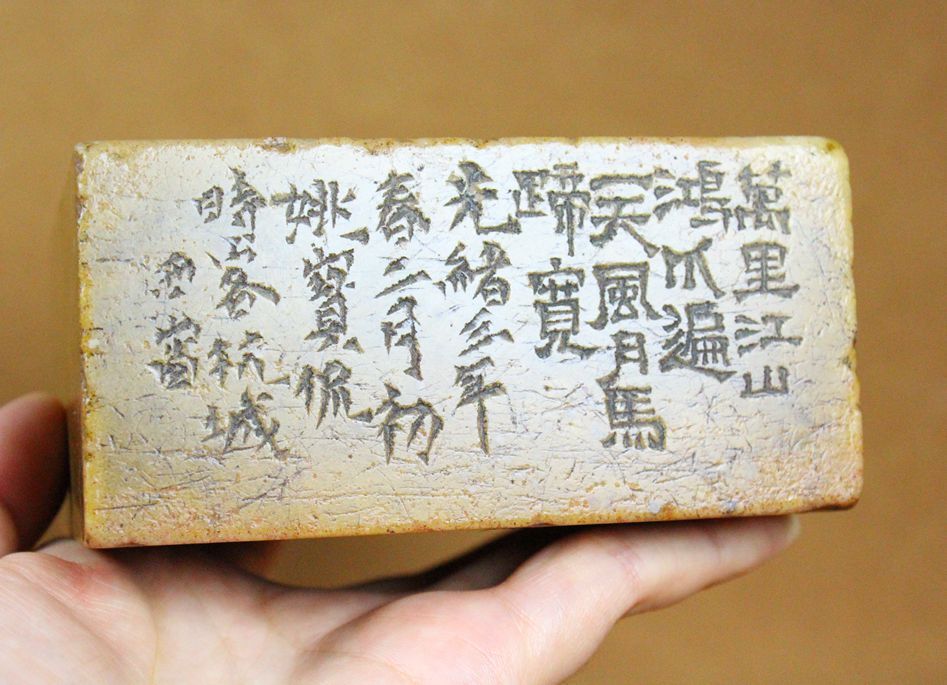 萬里江山
鴻爪遍
一天風月馬
蹄寬
光緒三年
春二月初
姚寶侃
時客杭城
窗